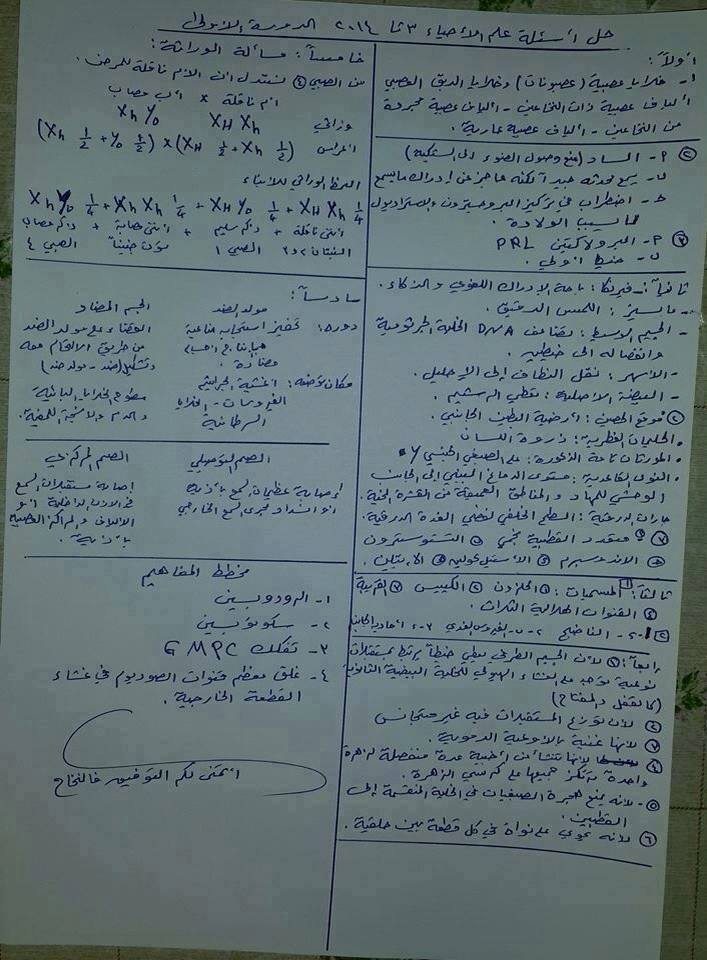 حل أسئلة علم الأحياء ٣ثا ٢٠١٤ الدورة الأولى
أولاً:
١- خلايا عصبية (عصبونات) وخلايا الدبق العصبي
ألياف عصبية ذات النخاعين - ألياف عصبية مجردة
من النخاعين - ألياف عصبية عارية.
② ٩- الساد (منع وصول الضوء إلى الشبكية)
ب- يسمع محدثه جيداً لكنه عاجز عن إدراك ما يسمع
ط- اضطراب في تركيز البروجسترون والاستراديول
ما يسبب الولادة.
③ ٩- البرولاكتين PRL
ب- خيط أولي.
ثانياً: - فيرنكا: باحة الإدراك اللغوي والذكاء.
- مايسنر: اللمس الدقيق.
- الجسيم الوسيط: تضاعف DNA الخلية الجرثومية
وانفصاله إلى خيطين.
- الأسهر: نقل النطاف إلى الإحليل.
- البيضة الأصلية: تعطي الرشيم.
② موقع الحصين: أرضية البطين الجانبي.
• الحليمات الفطرية: ذروة اللسان
• المورثات تامة الذكورة: على الصبغي الجنسي Y.
• النوى القاعدية: مستوى الدماغ البيني إلى الجانب
الوحشي للمهاد والمناطق العميقة من القشرة المخية.
جارات الدرقية: السطح الخلفي لفصي الغدة الدرقية.
التستوسترون
الأندوسبرم الأستيل كولين الأوتيلين.
ثالثاً: ① المسميات: ① الحلزون ② الكييس ③ القريبة
④ القنوات الهلالية الثلاث.
رابعاً: ① لأن الجسيم الطرفي يعطي خيطاً يرتبط بمستقبلات
نوعية توجد على الغشاء الهيولي للخلية البيضية الثانوية
(كالقفل والمفتاح)
② لأن توزع المستقبلات فيه غير متجانس
③ لأنها غنية بالأوعية الدموية.
④ لأنها تنشأ من أخبية عدة منفصلة لزهرة
واحدة يرتكز جميعها على كرسي الزهرة.
⑤ - لأنه يمنع هجرة الصبغيات في الخلية المنقسمة إلى
القطبين.
⑥ لأنه يحوي على نواة في كل قطعة بين حلقية.
خامساً: مسألة الوراثة:
من الصبي ④ نستدل أن الأم ناقلة للمرض.
أم ناقلة × أب مصاب
Xh Y0 XH Xh
أعراس (Xh ½ + Y0 ½) × (XH ½ + Xh ½)
النمط الوراثي للأبناء
Xh Y0 ¼ + Xh Xh ¼ + XH Y0 ¼ + XH Xh ¼
أنثى ناقلة + ذكر سليم + أنثى مصابة + ذكر مصاب
البنتان ٢ و٣ الصبي ١ تموت جنيناً الصبي ٤
سادساً:
مولد الضد الجسم المضاد
دوره: تحفيز استجابة مناعية القضاء على مولد الضد
عن طريق الالتحام معه
مضادة. وتشكيل (ضد - مولد ضد)
مكان توضعه: أغشية الجراثيم سطوح الخلايا البائية
الفيروسات - الخلايا والدم
السرطانية
الصمم التوصيلي الصمم المركزي
إصابة عظيمات السمع بأذية إصابة مستقبلات السمع
أو انسداد مجرى السمع الخارجي في الأذن الداخلية أو
الألياف والمراكز العصبية
بأذية.
مخطط المفاهيم
١- الرودوبسين
٢- سكوتوبسين
٣- تفكك GMPC
٤- غلق معظم قنوات الصوديوم في غشاء
القطعة الخارجية.
أتمنى لكم التوفيق والنجاح